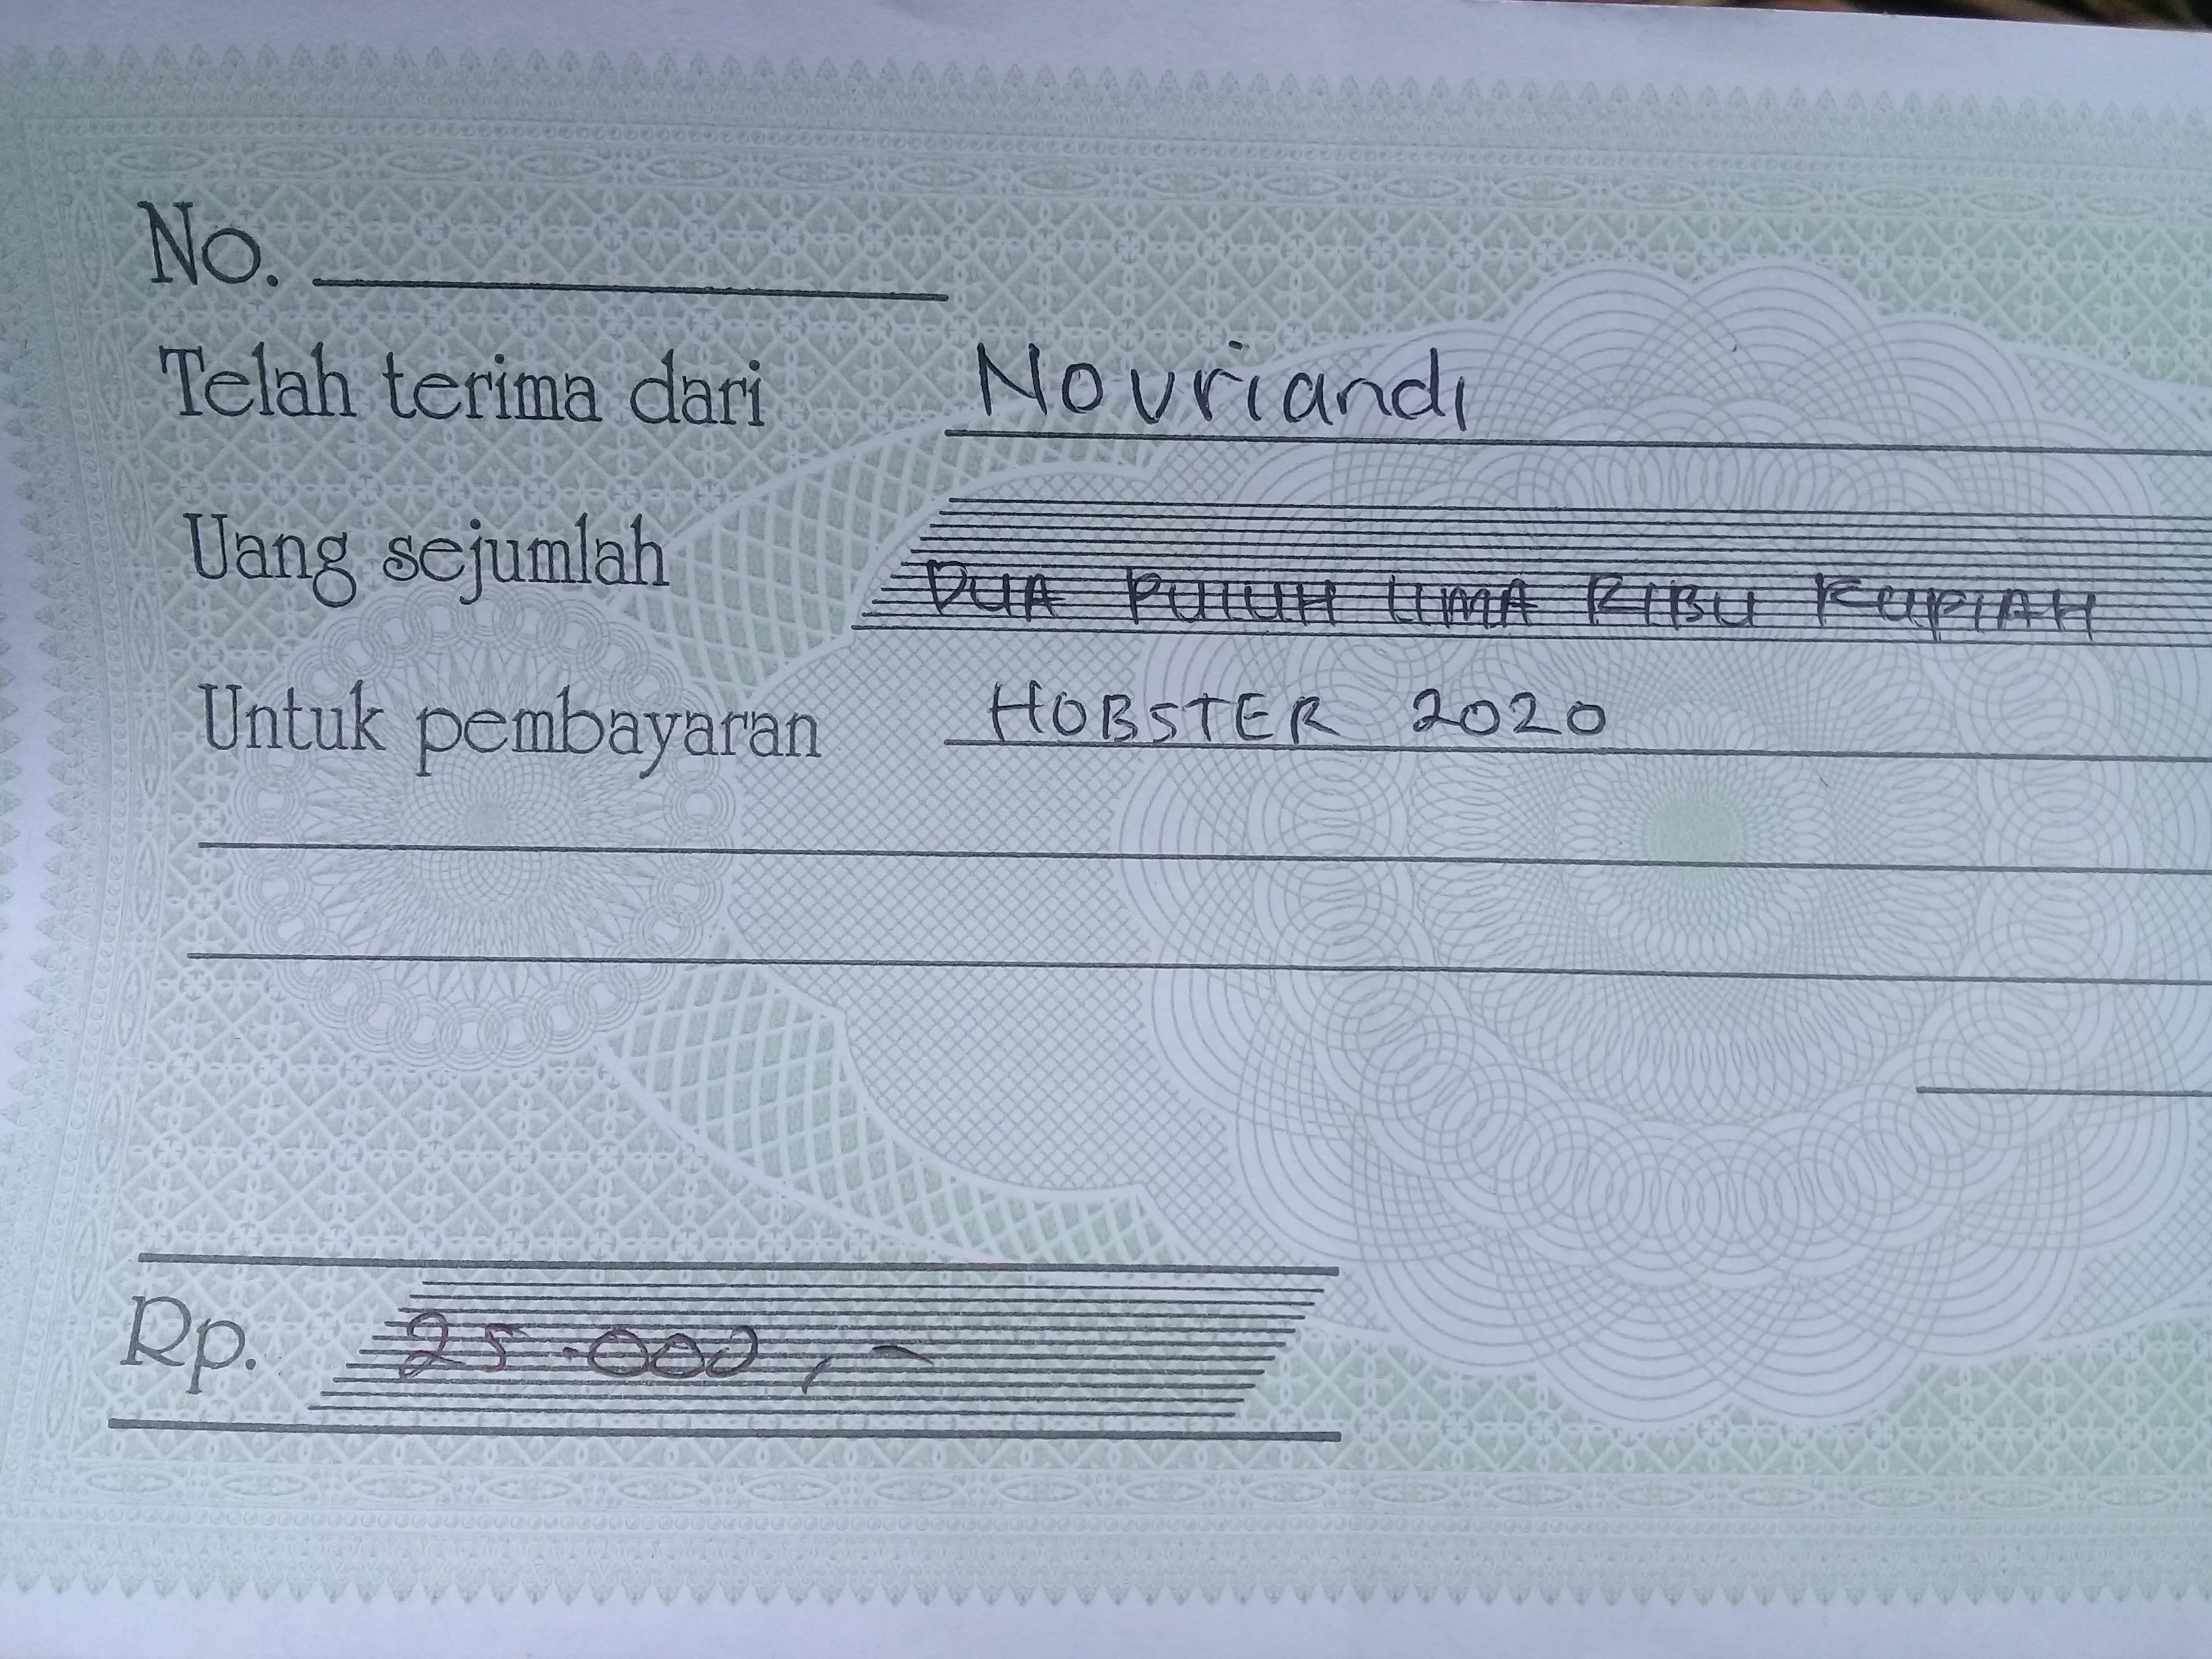 No.
Telah terima dari Novriandi
Uang sejumlah DUA PULUH LIMA RIBU RUPIAH
Untuk pembayaran HOBSTER 2020
Rp. 25.000,-